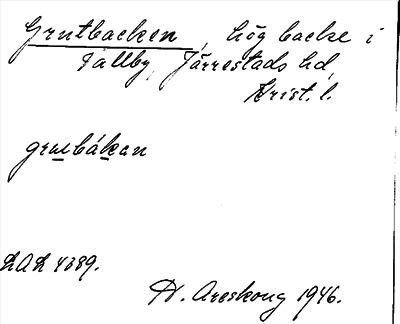 Grutbacken, hög backe i
Tallby, Järrestads hd,
Krist. l.
grusbákan
LAL 4389.
H. Areskoug 1946.